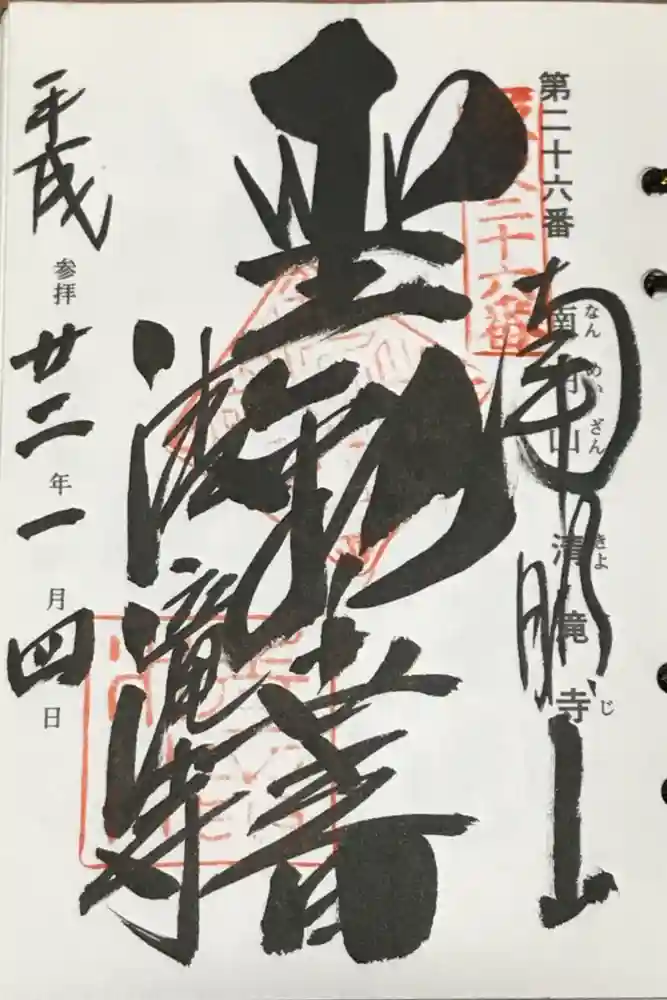 第二十六番
南明山 清滝寺
なん めい ざん きよ じ
南明山
二十六番
聖観音
清滝寺
平成
参拝
廿二年一月四日